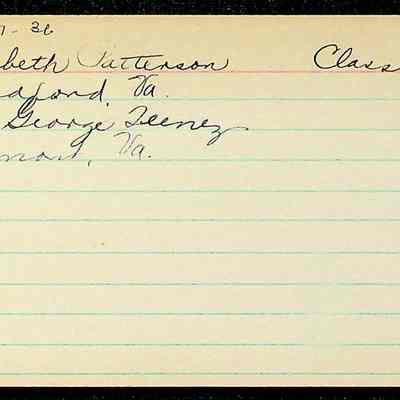 7-36
beth Patterson Class
dford, Va.
George Teenez
Va.